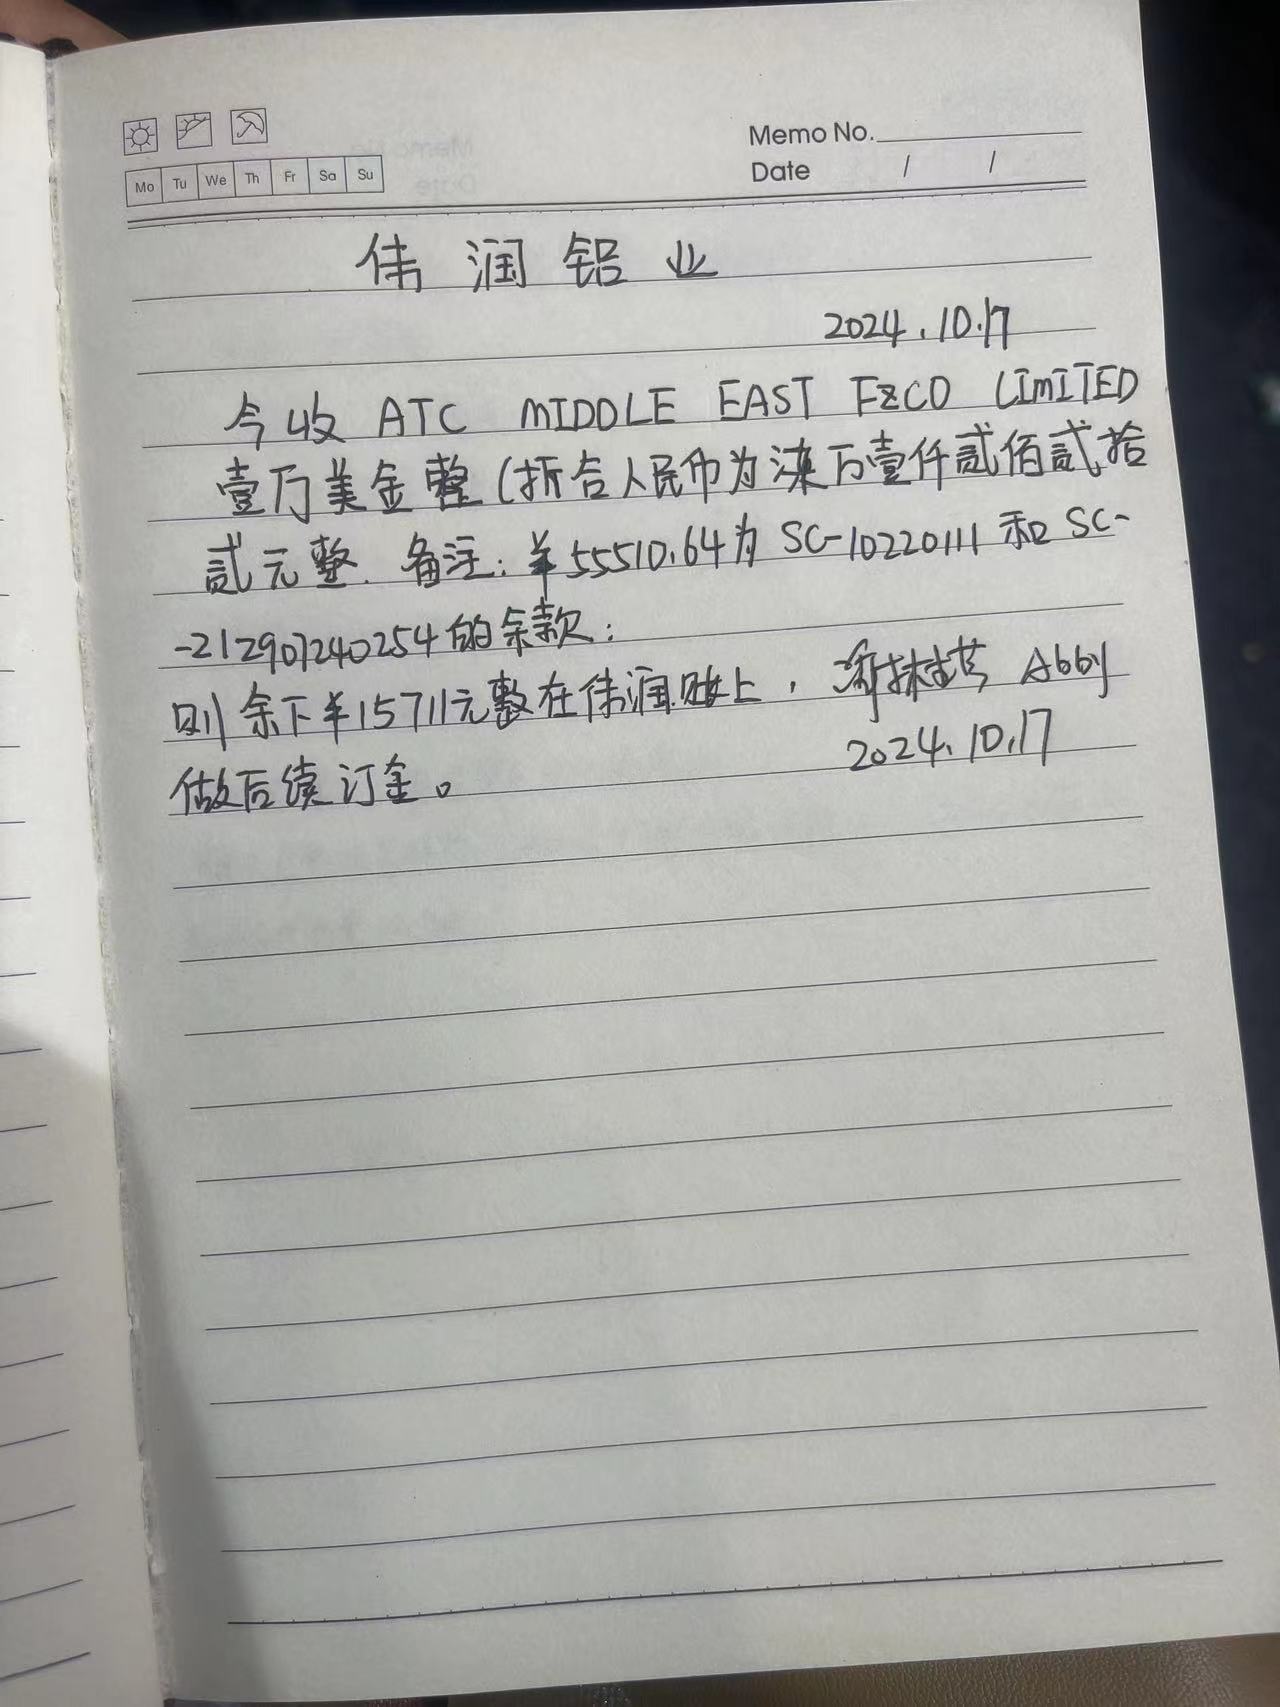 Mo Tu We Th Fr Sa Su
Memo No.
Date / /
伟润铝业
2024.10.17
今收 ATC MIDDLE EAST FZCO LIMITED
壹万美金整(折合人民币为柒万壹仟贰佰贰拾
贰元整. 备注: ¥55510.64为 SC-10220111 和 SC-
-212907240254的余款;
则余下¥15711元整在伟润账上, Abby
2024.10.17
做后续订金。